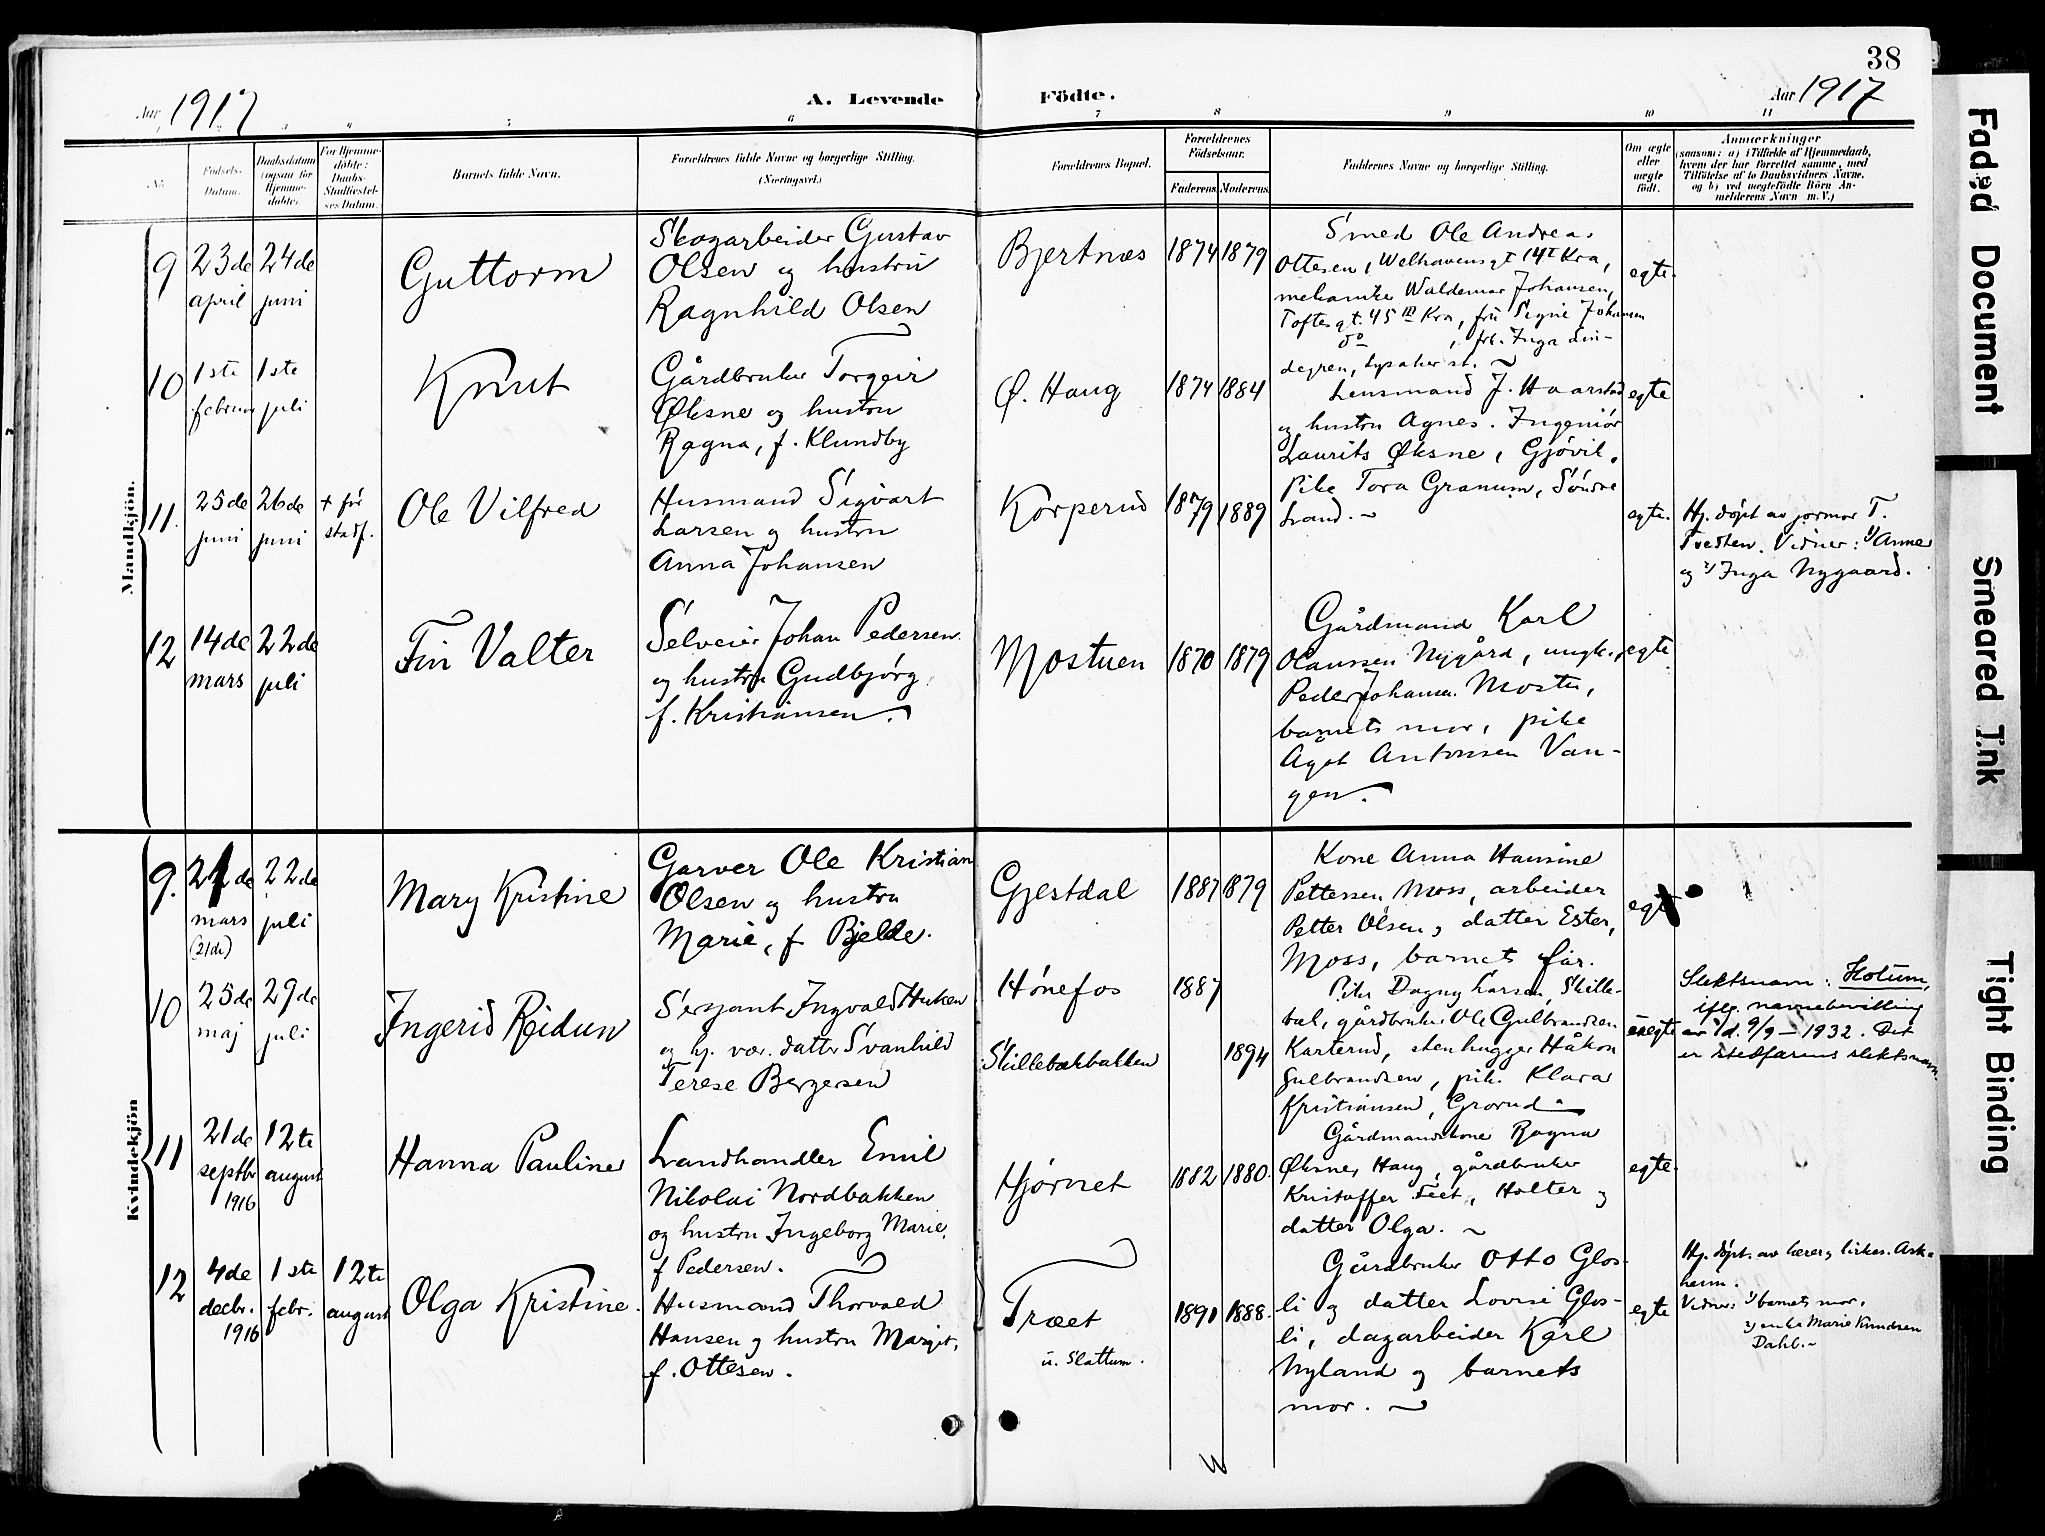 38
Aar 1917
A. Levende Födte.
Aar 1917
3 4 5 6 7 8 9 10 11
No.
Födsels-
Datum.
Daabsdatum
(ogsaa for
Hjemme-
döbte).
For Hjemme-
döbte:
Daabs-
Stadfæstel-
ses Datum.
Barnets fulde Navn.
Forældrenes fulde Navne og borgerlige Stilling.
(Næringsvei.)
Forældrenes Bopæl.
Forældrenes
Födselsaar.
Faderens.
Moderens.
Faddernes Navne og borgerlige Stilling.
Om ægte
eller
uægte
födt.
Anmerkninger
(saasom: a) i Tilfælde af Hjemmedaab,
hvem der har forrettet samme, med
Tilföielse af to Daabsvidners Navne,
og b) ved uægtefödte Börn An-
melderens Navn m. V.)
Mandkjön.
9
23de
april
24de
juni
Guttorm
Skogarbeider Gustav
Olsen og hustru
Ragnhild Olsen
Bjertnæs
1874
1879
Smed Ole Andreas
Ottesen, Welhavensgt 14 I Kra,
mekaniker Waldemar Johansen,
Toftesgt. 45 III Kra, fru Signe Johansen
do, frk. Inga Lin-
degren, Lysaker st.
egte.
10
1ste
februar
1ste
juli
Knut
Gårdbruker Torgeir
Øksne og hustru
Ragna, f. Klundby
Ø. Haug
1874
1884
Lensmand J. Haarstad
og hustru Agnes. Ingeniør
Laurits Øksne, Gjøvik.
Pike Tora Granum, Søndre
Land.
egte
11.
25de
juni
26de
juni
+ før
stadf.
Ole Vilfred
Husmand Sigvart
Larsen og hustru
Anna Johansen
Korperud
1879
1889
egte.
Hj. døpt av jormor T.
Tvedten. Vidner: 1) Anne
og 2) Inga Nygaard.
12
14de
mars
22de
juli
Fin Valter
Selveier Johan Pedersen
og hustru Gudbjørg,
f. Kristiansen.
Mostuen
1870
1879
Gårdmand Karl
Olaussen Nygård, ungk.
Peder Johansen Mostu,
barnets mor, pike
Agot Antonsen Van-
gen.
egte
Kvindekjön
9.
21de
mars
(21de)
22de
juli
Mary Kristine
Garver Ole Kristian
Olsen og hustru
Marie, f. Bjelde.
Gjestdal
1887
1879
Kone Anna Hansine
Pettersen, Moss, arbeider
Petter Olsen, datter Ester,
Moss, barnets far.
egte
10
25de
maj
29de
juli
Ingerid Reidun
Sersjant Ingvald Huken
og hj. vær. datter Svanhild
Terese Bergersen
Hønefos
Skillebækbakken
1887
1894
Pike Dagny Larsen, Skille-
bæk, gårdbruker Ole Gulbrandsen
Karterud, stenhugger Håkon
Gulbrandsen, pike Klara
Kristiansen, Grorud
uegte
Slektsnavn: Hotum,
iflg. navnebevilling
av d. 9/9-1932. Det
er stedfarens slektsnavn.
11
21de
septbr
1916
12te
august
Hanna Pauline
Landhandler Emil
Nikolai Nordbakken
og hustru Ingeborg Marie,
f. Pedersen.
Hjørnet
1882
1880.
Gårdmandskone Ragna
Øksne, Haug, gårdbruker
Kristoffer Teet, Holter og
datter Olga.
egte.
12
4de
decbr.
1916
1ste
febr.
12te
august
Olga Kristine.
Husmand Thorvald
Hansen og hustru Margit,
f. Ottesen.
Træet
u. Slattum.
1891
1888.
Gårdbruker Otto Glos-
li og datter Lovise Glos-
li, dagarbeider Karl
Nyland og barnets
mor.
egte
Hj. døpt. av lærer, kirkes. Ask-
heim.
Vidner: 1) barnets mor,
2) enke Marie Knudsen
Dahl.
Faded Document
Smeared Ink
Tight Binding